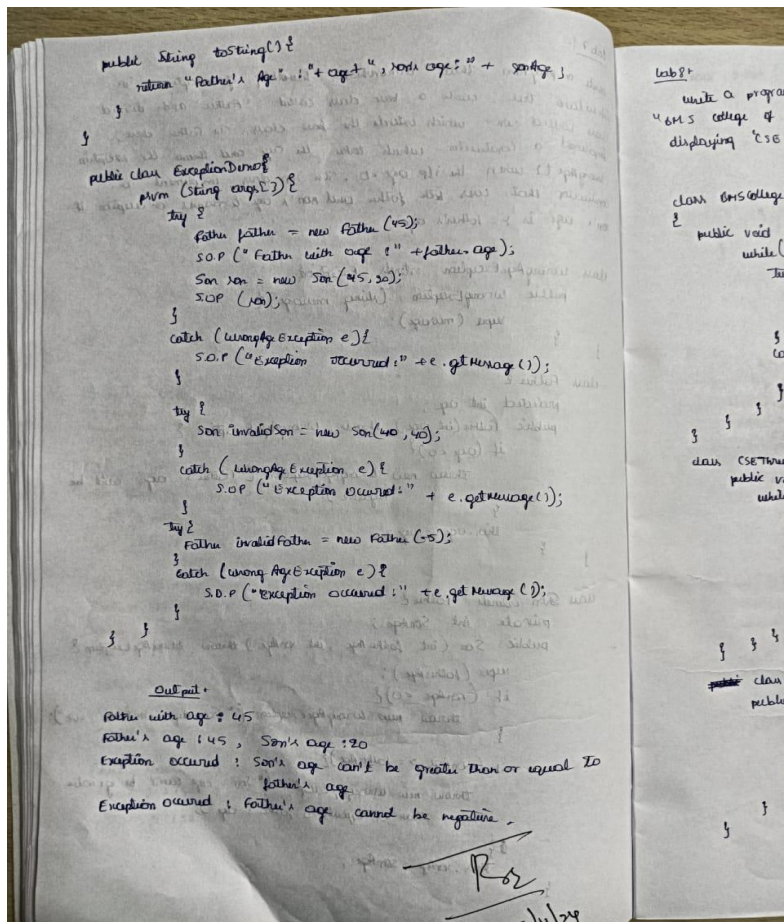 public String toString() {
return "Father's Age" : "+ age + ", son's age : " + sonAge ;
}
}
public class ExceptionDemo{
psvm (String args[]) {
try {
Father father = new Father (45);
S.O.P ("Father with age : " + father. age);
Son son = new Son (45, 20);
SOP (son);
}
catch (wrongAge Exception e) {
S.O.P ("Exception occurred :" + e. getMessage ());
}
try {
Son invalidSon = new Son(40, 40);
}
catch (wrongAge Exception e) {
S.O.P ("Exception occured :" + e. getMessage ());
}
try {
Father invalidFather = new Father (-5);
}
catch (wrong Age Exception e) {
S.O.P ("Exception occurred :" + e. get Message ());
}
} }
Output.
Father with age : 45
Father's age : 45 , Son's age : 20
Exception occured : Son's age can't be greater than or equal to
father's age
Exception occured : Father's age cannot be negative.
Lab 8:
write a progra
"BMS college of
displaying "CSE
class BMSCollege
{
public void
while(
}
}
} }
}
class CSEThre
public v
while
} } }
class
public
}
}